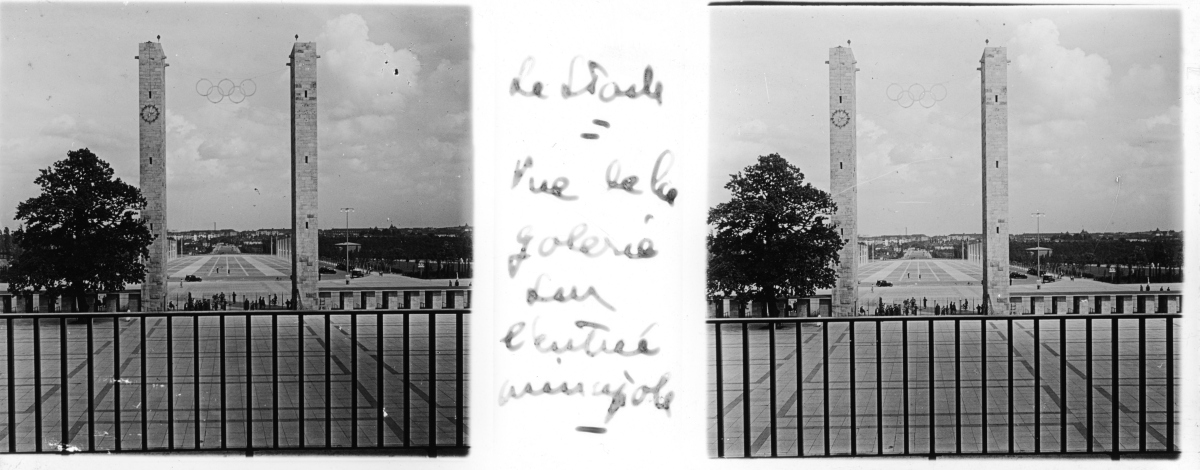 Le Stade
=
Vue de la
galerie
sur
l'entrée
principale